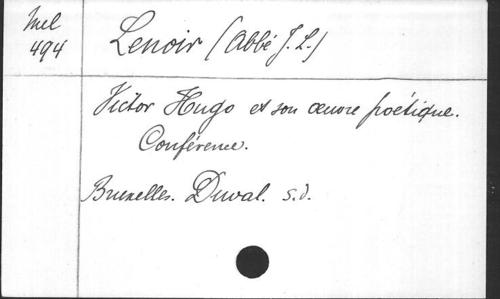 Mel
494
Lenoir (Abbé J. L.)
Victor Hugo et son œuvre poétique.
Conférence.
Bruxelles. Duval. s.d.